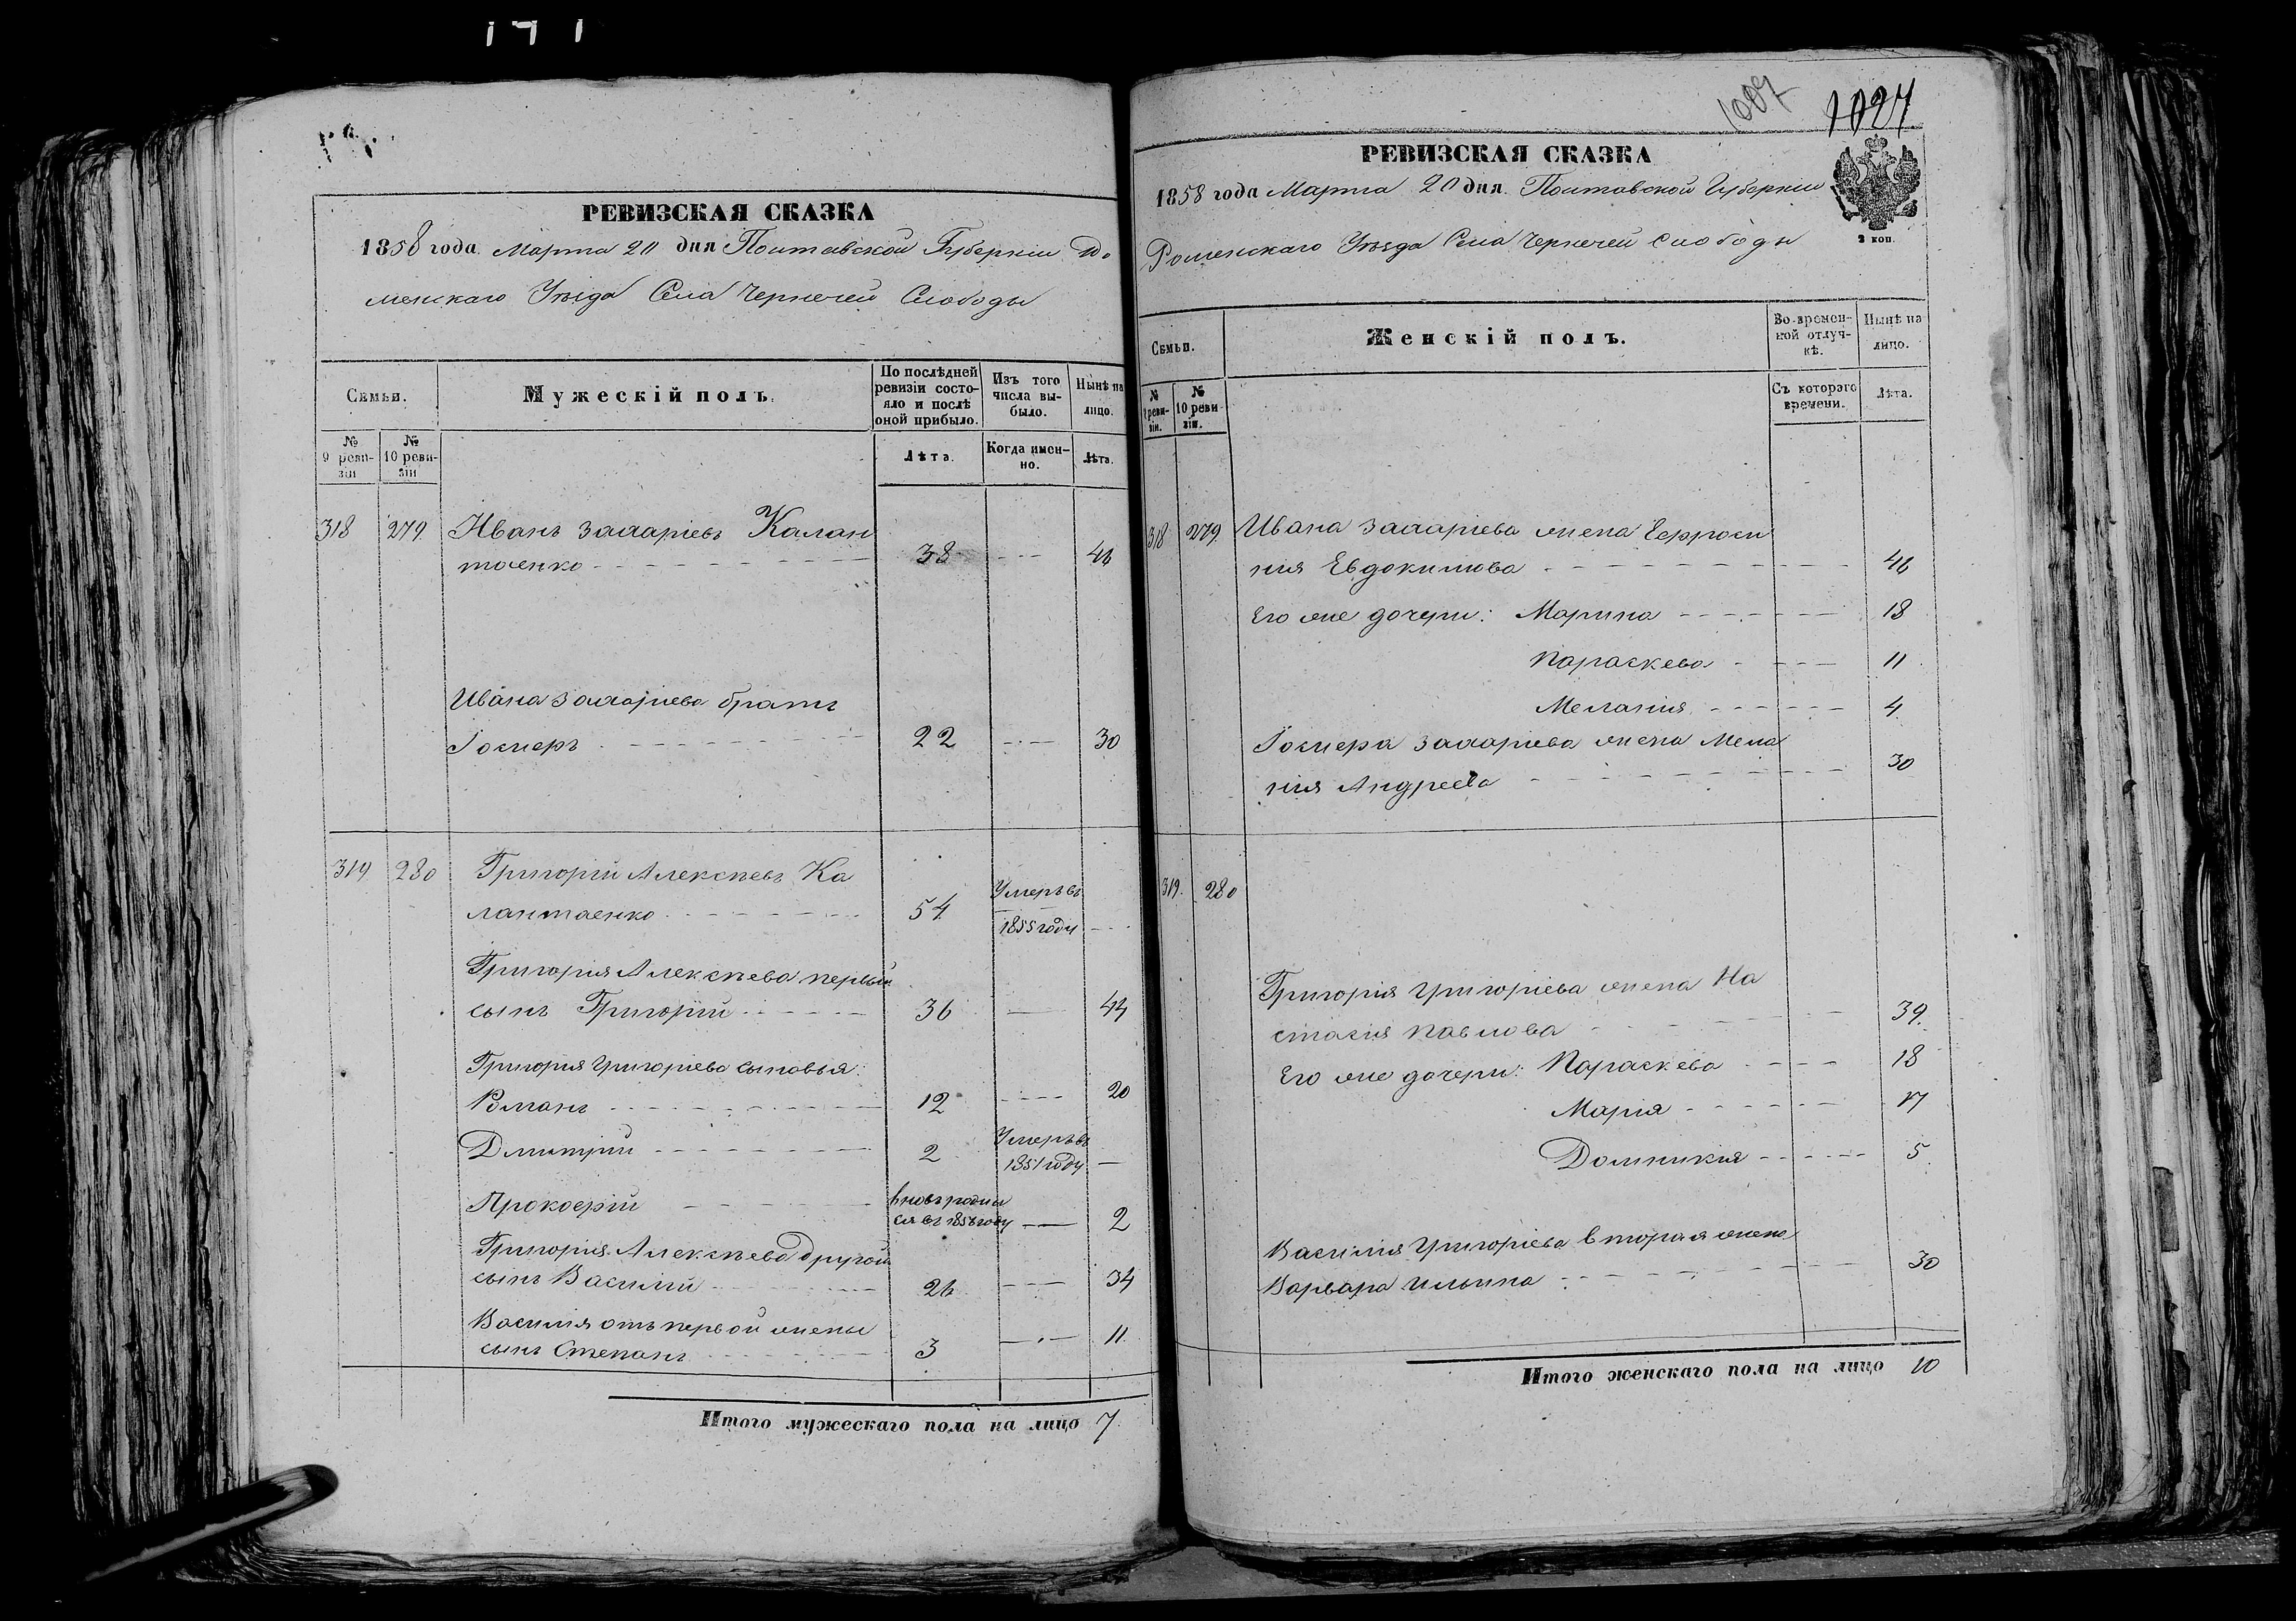 РЕВИЗСКАЯ СКАЗКА
1858 года Марта 20 дня Полтавской Губернии Ро
менскаго Уѣзда Села Чернечей Слободы
Семьи.
Мужескій полъ.
По послѣдней ревизіи состояло и послѣ оной прибыло.
Изъ того числа выбыло.
Нынѣ на лицо.
№ 9 ревизіи
№ 10 ревизіи
Лѣта.
Когда именно.
Лѣта.
318 279 Иванъ Захаріевъ Калан
таенко 38 46
Ивана Захаріева братъ
Іосифъ 22 30
319 280 Григорій Алексѣевъ Ка
лантаенко 54 Умеръ въ
1855 году
Григорія Алексѣева первый
сынъ Григорій 36 44
Григорія Григоріева сыновья:
Романъ 12 20
Дмитрій 2 Умеръ въ
1851 году
Прокофій вновь родил
ся въ 1856 году 2
Григорія Алексѣева другой
сынъ Василій 26 34
Василія отъ первой жены
сынъ Степанъ 3 11
Итого мужескаго пола на лицо 7
1087 1027
РЕВИЗСКАЯ СКАЗКА
1858 года Марта 20 дня Полтавской Губерніи
Роменскаго Уѣзда Села Чернечей Слободы
2 коп.
Семьи.
Женскій полъ.
Во временной отлучкѣ.
Нынѣ на лицо.
№ 9 ревизіи.
№ 10 ревизіи.
Съ котораго времени.
Лѣта.
318 279 Ивана Захаріева жена Ефроси
нія Евдокимова 46
Его же дочери: Марина 18
Параскева 11
Меланія 4
Іосифа Захаріева жена Мела
нія Андреева 30
319. 280
Григорія Григоріева жена На
стасія Павлова 39.
Его же дочери: Параскева 18
Марія 17
Домникія 5
Василія Григоріева вторая жена
Варвара Ильина 30
Итого женскаго пола на лицо 10